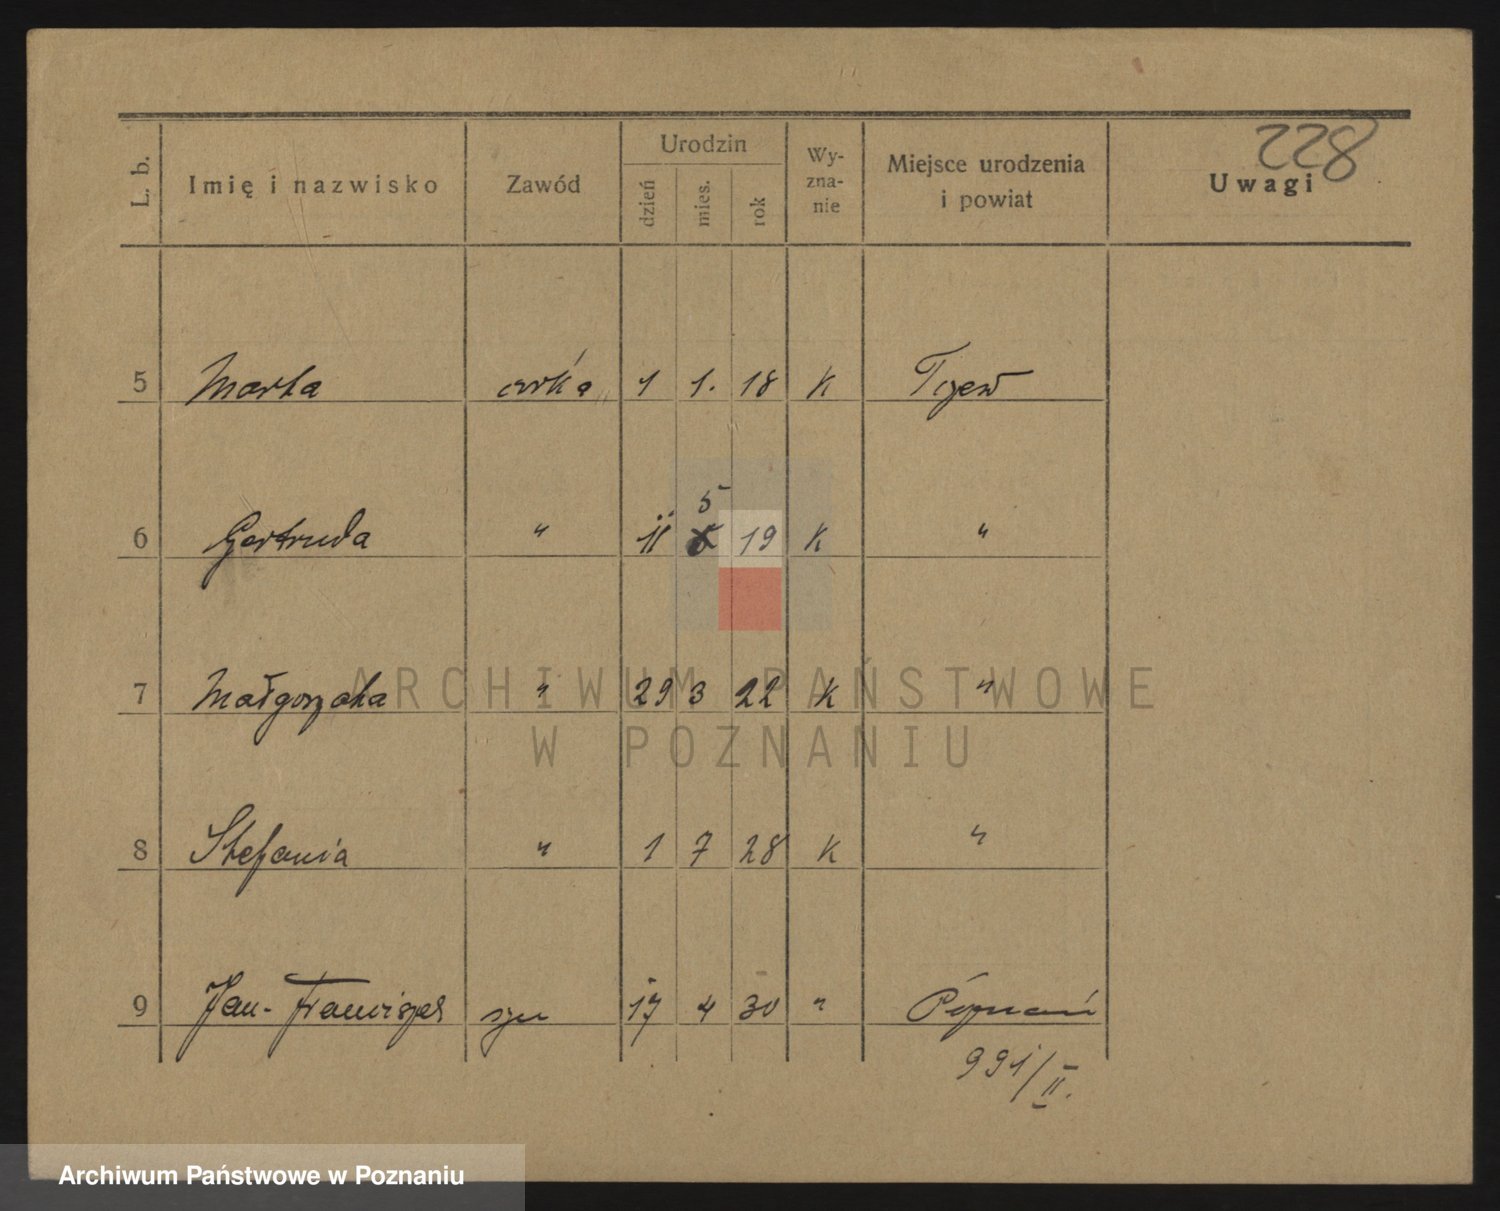 228
L. b. Imię i nazwisko Zawód Urodzin dzień mies. rok Wy-zna-nie Miejsce urodzenia i powiat Uwagi
5 Marta córka 1 1. 18 K Tczew
6 Gertruda " 11 5 19 K "
7 Małgorzata " 29 3 22 K "
ARCHIWUM PAŃSTWOWE
W POZNANIU
8 Stefania " 1 7 28 K "
9 Jan-Franciszek syn 17 4 30 " Poznań
991/II.
Archiwum Państwowe w Poznaniu